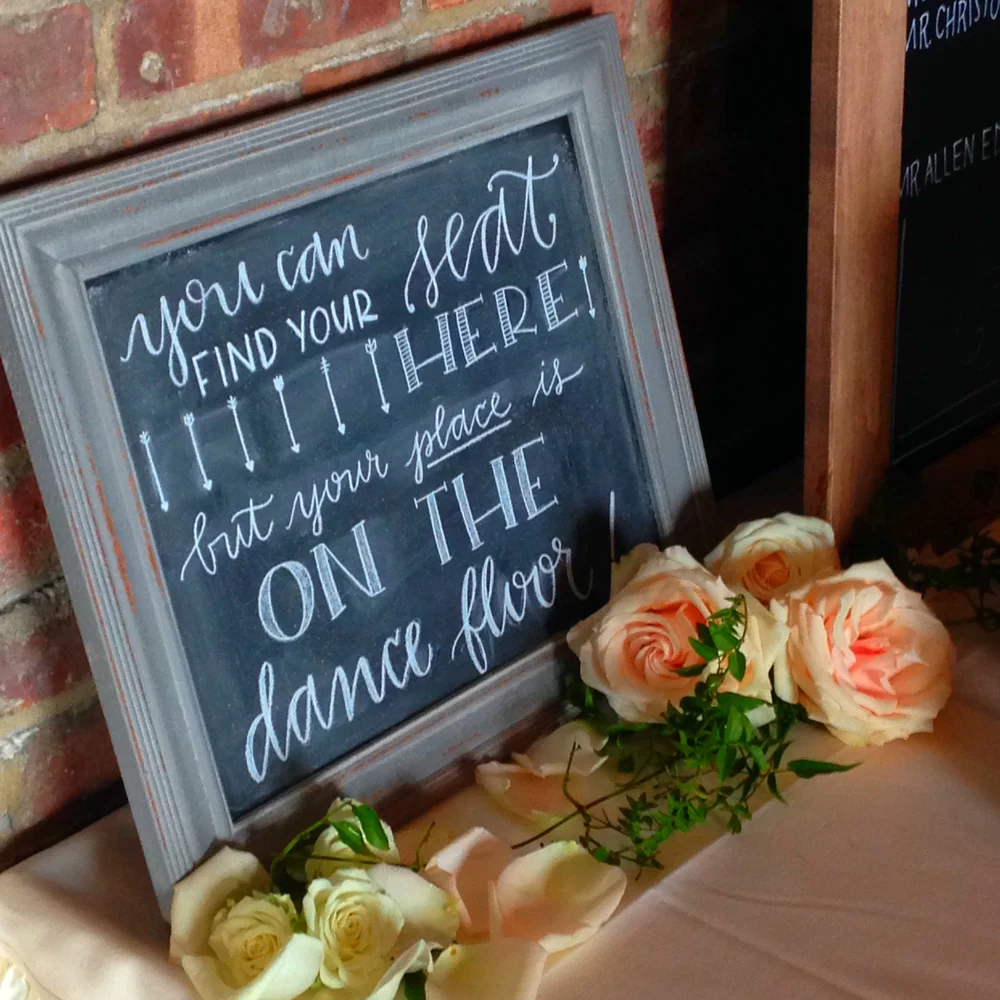 you can
FIND YOUR seat
HERE!
but your place is
ON THE
dance floor!
MR ALLEN